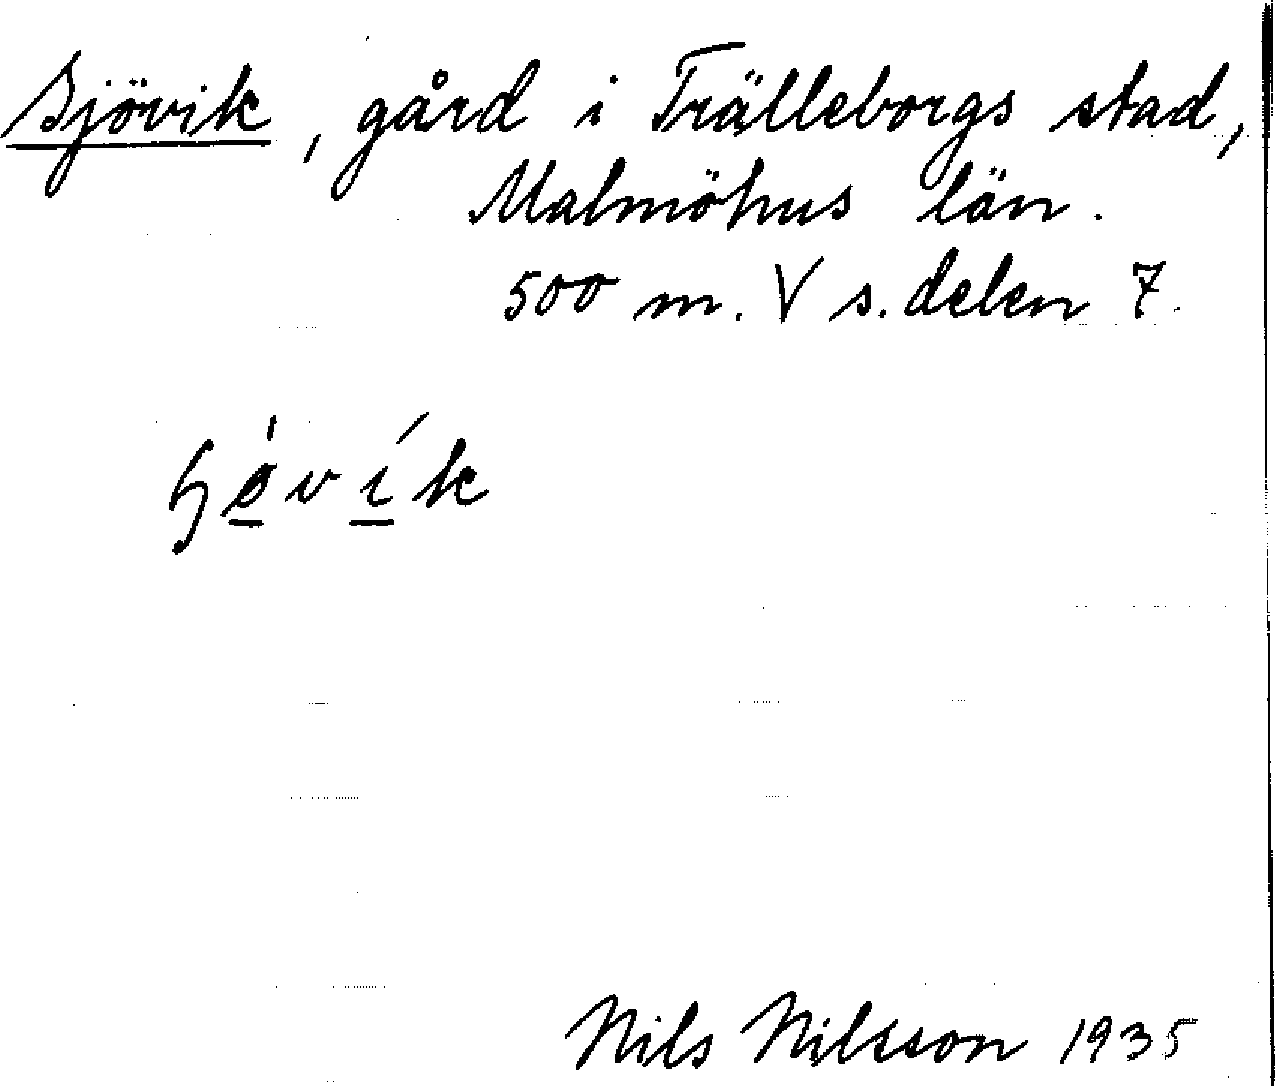 Sjövik, gård i Trälleborgs stad,
Malmöhus län.
500 m. V s. delen 7.
Nils Nilsson 1935